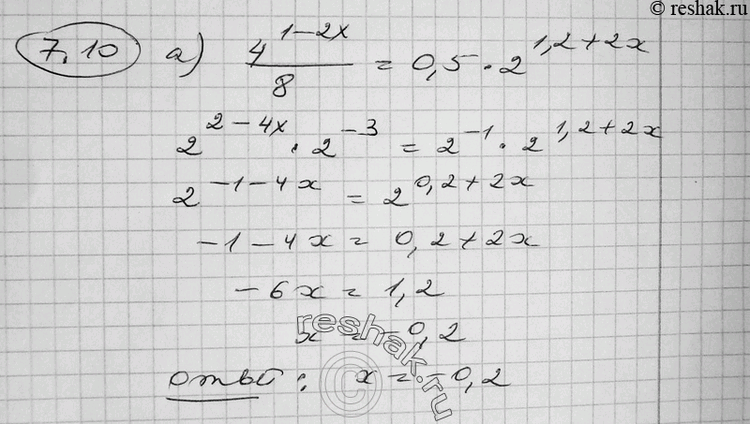 © reshak.ru
7.10 а) 4^{1-2x}/8 = 0,5 · 2^{1,2+2x}
2^{2-4x} · 2^{-3} = 2^{-1} · 2^{1,2+2x}
2^{-1-4x} = 2^{0,2+2x}
-1-4x = 0,2+2x
-6x = 1,2
x = -0,2
ответ: x = -0,2
reshak.ru
©